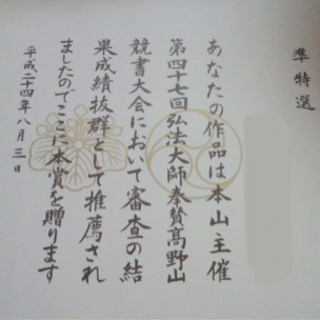 準特選
あなたの作品は本山主催
第四十七回弘法大師奉賛高野山
競書大会において審査の結
果成績抜群として推薦され
ましたのでここに本賞を贈ります
平成二十四年八月三日